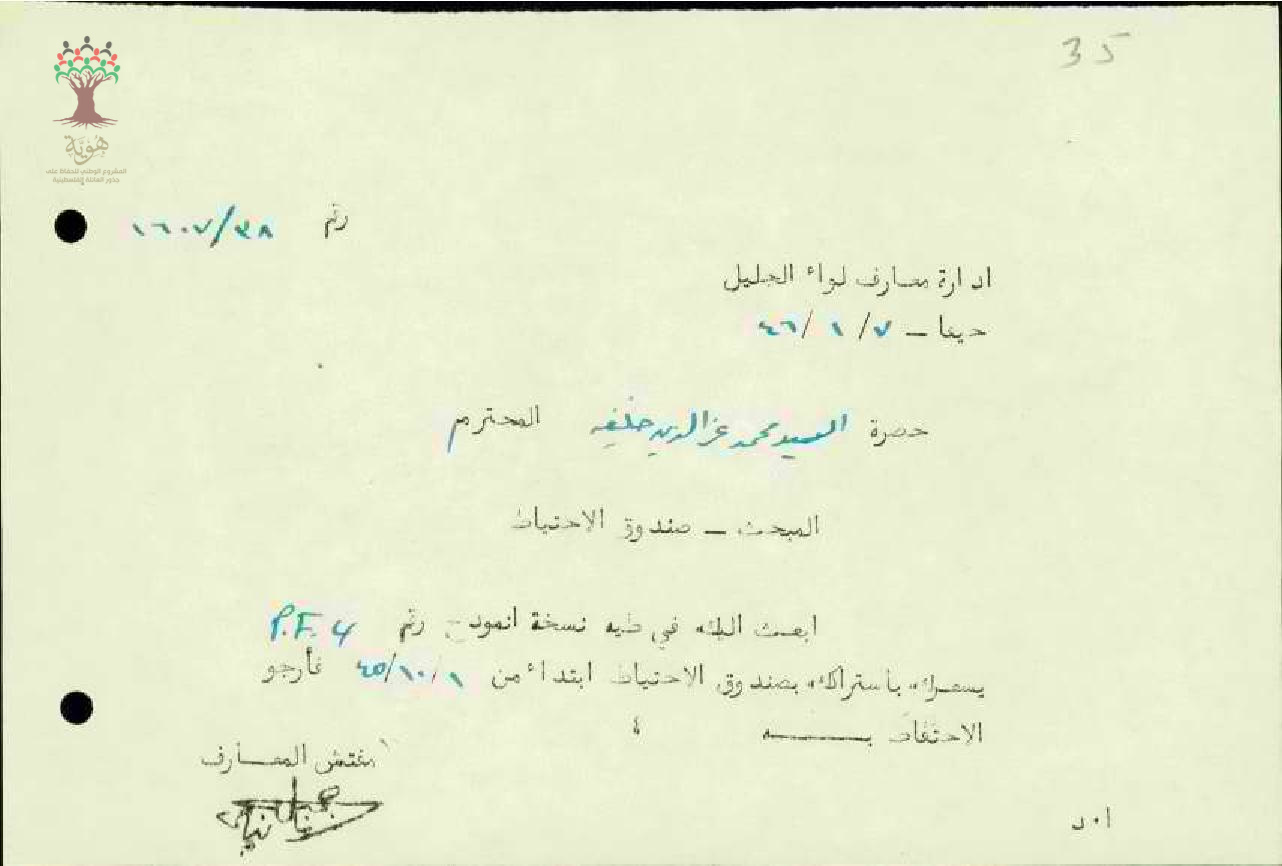 35
هوية
المشروع الوطني للحفاظ على
جذور العائلة الفلسطينية
رقم ١٦٠٧/٣٨
ادارة معارف لواء الجليل
حيفا – ٧/ ١ /٤٦
حضرة السيد محمد عز الدين خليفه المحترم
المبحث – صندوق الاحتياط
ابعث اليك في طيه نسخة انموذج رقم P.F. 4
يشعرك باشتراكك بصندوق الاحتياط ابتداء من ٤٥/١٠/١ فأرجو
الاحتفاظ بــــه ،
مفتش المعــارف
ا٠د